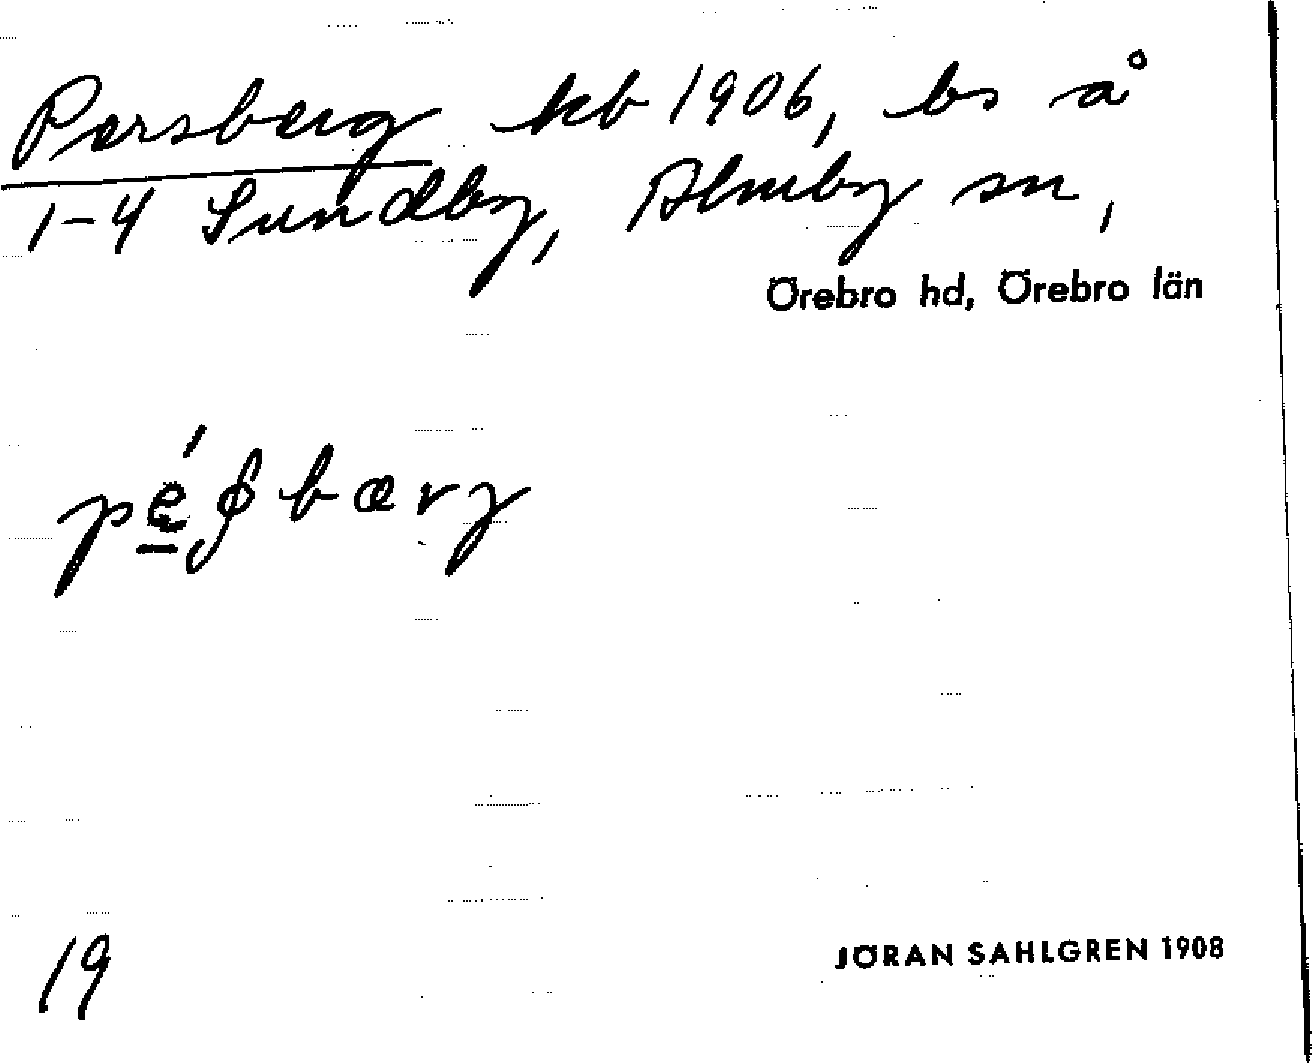 Persberg kb 1906, bs å
1–4 Sundby, Almby sn,
Örebro hd, Örebro län
19
JÖRAN SAHLGREN 1908